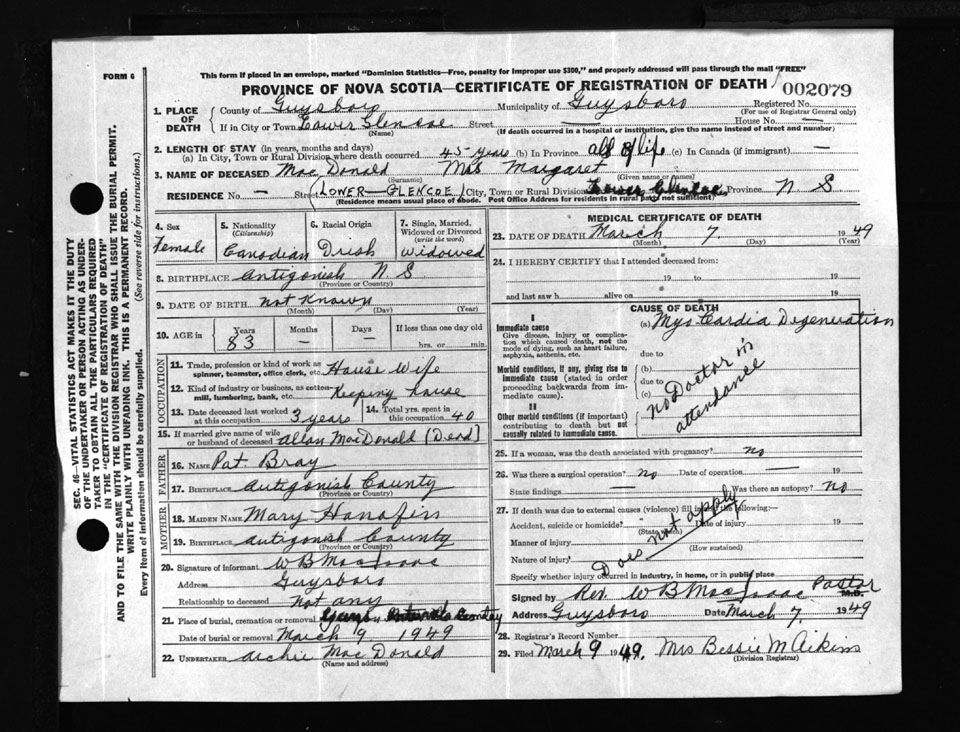 FORM 6
This form if placed in an envelope, marked "Dominion Statistics—Free, penalty for improper use $300," and properly addressed will pass through the mail "FREE"
PROVINCE OF NOVA SCOTIA—CERTIFICATE OF REGISTRATION OF DEATH
002079
1. PLACE OF DEATH
County of Guysboro Municipality of Guysboro Registered No.
(For use of Registrar General only)
If in City or Town Lower Glencoe Street — House No. —
(Name) (If death occurred in a hospital or institution, give the name instead of street and number)
2. LENGTH OF STAY (in years, months and days)
(a) In City, Town or Rural Division where death occurred 45 years (b) In Province all of life (c) In Canada (if immigrant) —
3. NAME OF DECEASED MacDonald Mrs Margaret
(Surname) (Given name or names)
RESIDENCE No. — Street (LOWER-GLENCOE) City, Town or Rural Division Lower Glencoe Province N S
(Residence means usual place of abode. Post Office Address for residents in rural parts not sufficient)
4. Sex
Female
5. Nationality
(Citizenship)
Canadian
6. Racial Origin
Irish
7. Single, Married, Widowed or Divorced
(write the word)
Widowed
8. BIRTHPLACE Antigonish N S
(Province or Country)
9. DATE OF BIRTH Not Known
(Month) (Day) (Year)
10. AGE in Years Months Days If less than one day old
83 — — hrs. or min.
OCCUPATION
11. Trade, profession or kind of work as spinner, teamster, office clerk, etc. House Wife
12. Kind of industry or business, as cotton-mill, lumbering, bank, etc. Keeping house
13. Date deceased last worked at this occupation 3 years 14. Total yrs. spent in this occupation 40
15. If married give name of wife or husband of deceased Allan MacDonald (Dead)
FATHER
16. NAME Pat Bray
17. BIRTHPLACE Antigonish County
(Province or Country)
MOTHER
18. MAIDEN NAME Mary Hanafin
19. BIRTHPLACE Antigonish County
(Province or Country)
20. Signature of informant W B MacIsaac
Address Guysboro
Relationship to deceased Not any
21. Place of burial, cremation or removal
Date of burial or removal March 9 1949
22. UNDERTAKER Archie MacDonald
(Name and address)
MEDICAL CERTIFICATE OF DEATH
23. DATE OF DEATH March 7. 1949
(Month) (Day) (Year)
24. I HEREBY CERTIFY that I attended deceased from:
19 to 19
and last saw h alive on 19
CAUSE OF DEATH
I
Immediate cause
Give disease, injury or complication which caused death, not the mode of dying, such as heart failure, asphyxia, asthenia, etc.
(a) Myo Cardia Degeneration
due to
Morbid conditions, if any, giving rise to immediate cause (stated in order proceeding backwards from immediate cause).
(b)
due to
(c)
No Doctor in attendance
II
Other morbid conditions (if important) contributing to death but not causally related to immediate cause.
25. If a woman, was the death associated with pregnancy? no
26. Was there a surgical operation? No Date of operation — 19
State findings — Was there an autopsy? No
27. If death was due to external causes (violence) fill in the following:—
Accident, suicide or homicide? Date of injury 19
(State which)
Manner of injury
(How sustained)
Nature of injury
Does not apply
Specify whether injury occurred in industry, in home, or in public place
Signed by Rev. W B MacIsaac Pastor M.D.
Address Guysboro Date March 7. 1949
28. Registrar's Record Number
29. Filed March 9 1949. Mrs Bessie M Aikins
(Division Registrar)
SEC. 46—VITAL STATISTICS ACT MAKES IT THE DUTY
OF THE UNDERTAKER OR PERSON ACTING AS UNDER-
TAKER TO OBTAIN ALL THE PARTICULARS REQUIRED
IN THE "CERTIFICATE OF REGISTRATION OF DEATH"
AND TO FILE THE SAME WITH THE DIVISION REGISTRAR WHO SHALL ISSUE THE BURIAL PERMIT.
WRITE PLAINLY WITH UNFADING INK. THIS IS A PERMANENT RECORD.
Every item of information should be carefully supplied. (See reverse side for instructions.)